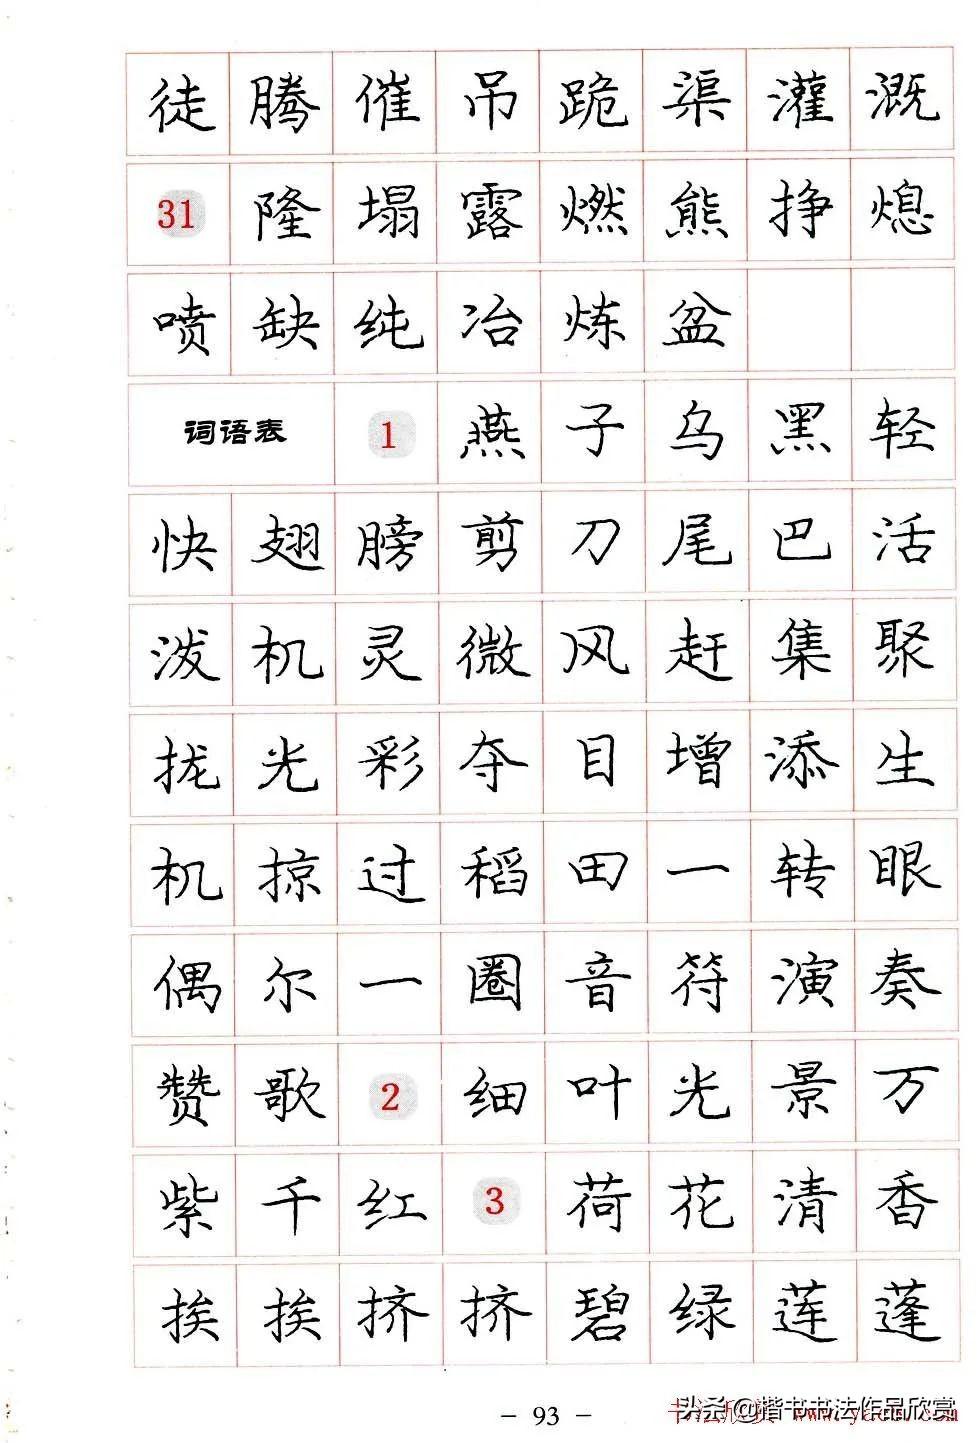 徒腾催吊跪渠灌溉
31隆塌露燃熊挣熄
喷缺纯冶炼盆
词语表1燕子乌黑轻
快翅膀剪刀尾巴活
泼机灵微风赶集聚
拢光彩夺目增添生
机掠过稻田一转眼
偶尔一圈音符演奏
赞歌2细叶光景万
紫千红3荷花清香
挨挨挤挤碧绿莲蓬
- 93 -
头条@楷书书法作品欣赏